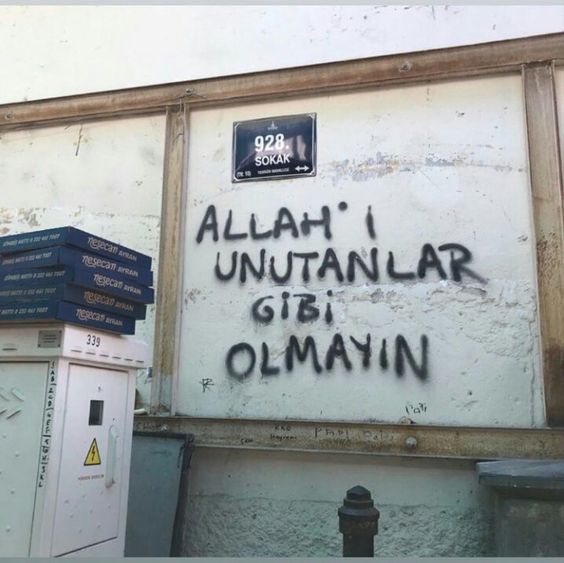 928.
SOKAK
ALLAH'I
UNUTANLAR
GİBİ
OLMAYIN
neşecan AYRAN
neşecan AYRAN
neşecan AYRAN
neşecan AYRAN
neşecan AYRAN
339